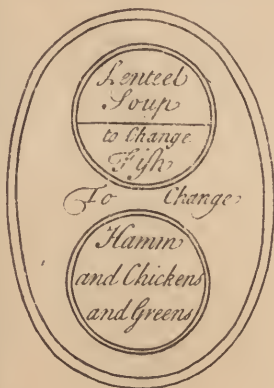 Lenteel
Soup
to Change
Fish
To Change
Hamm
and Chickens
and Greens